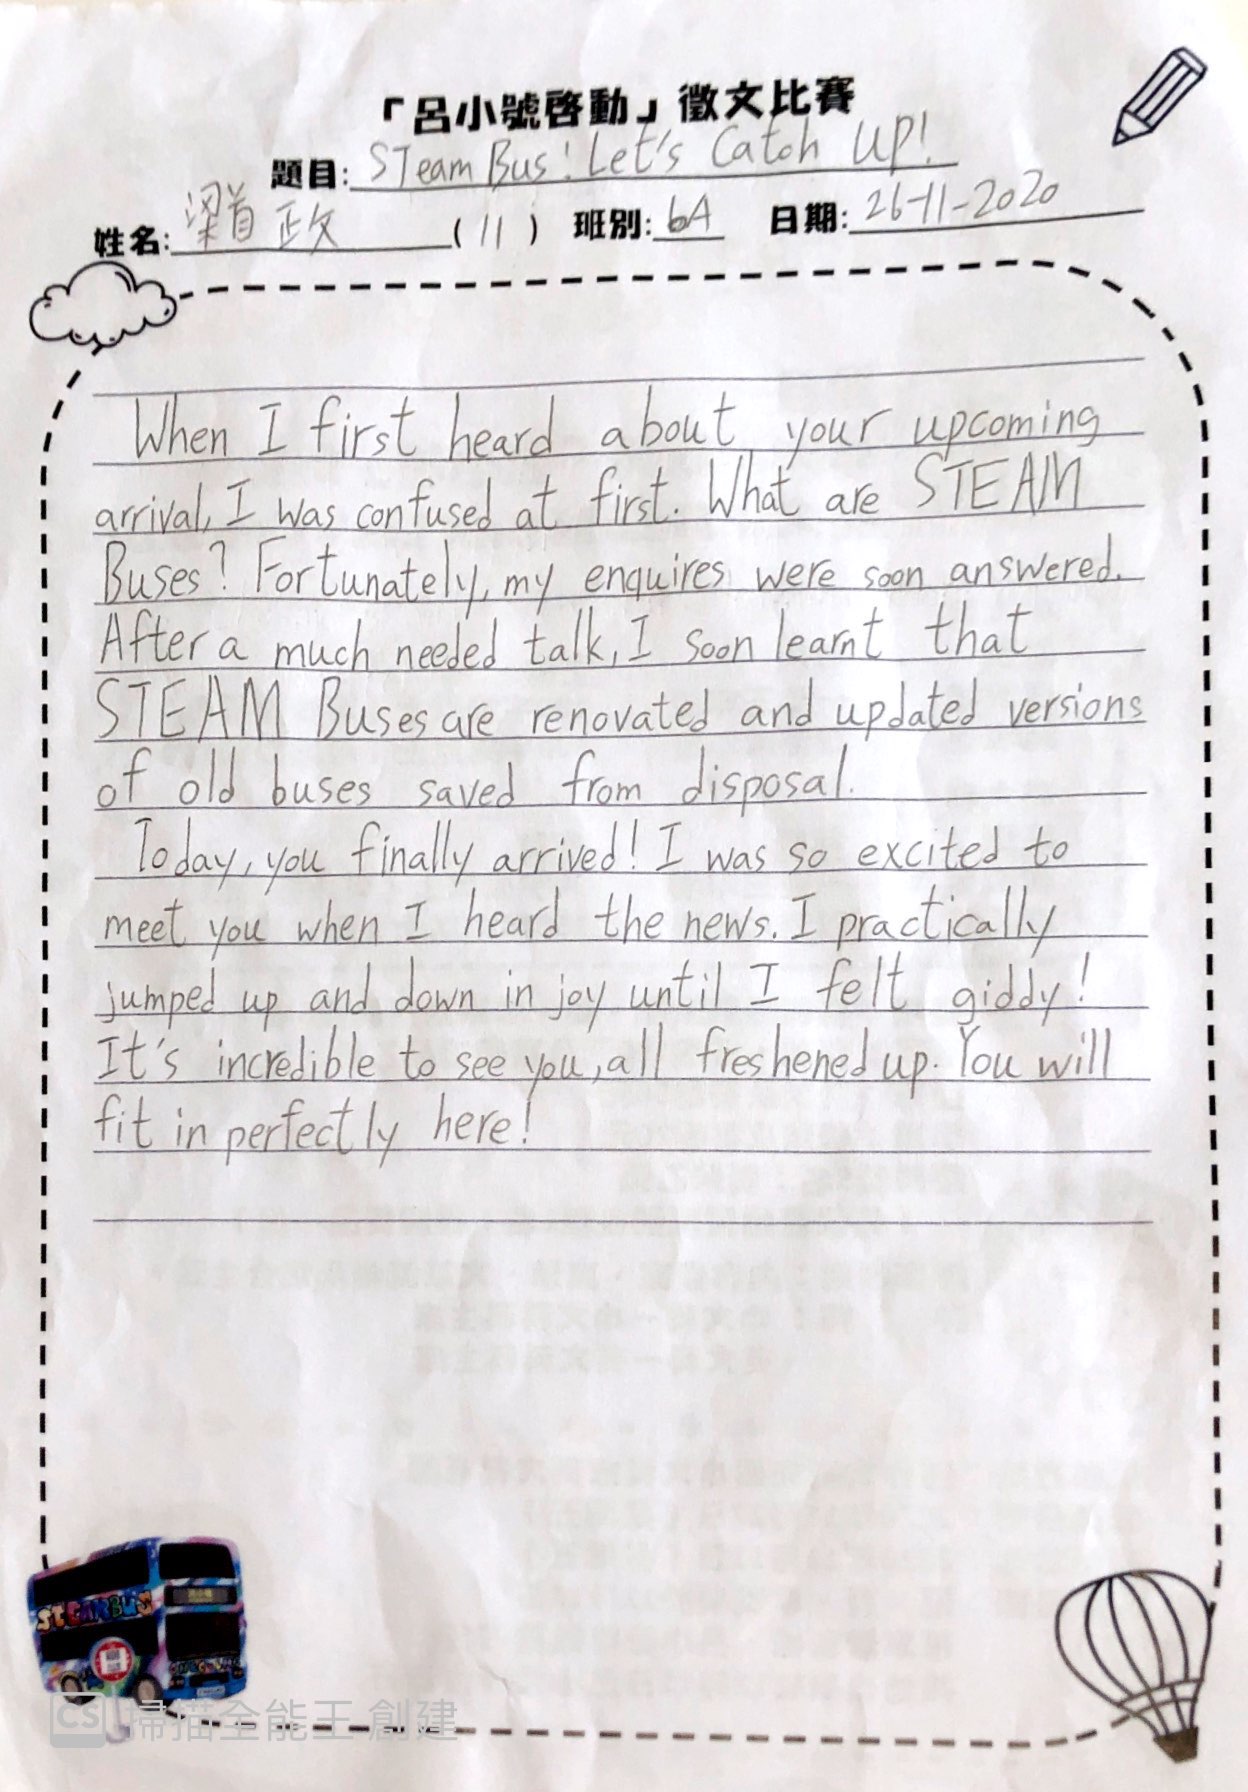 「呂小號啓動」徵文比賽
題目: STeam Bus! Let's Catch UP!
姓名: 梁首政 (11) 班別: 6A 日期: 26-11-2020
When I first heard about your upcoming
arrival, I was confused at first. What are STEAM
Buses? Fortunately, my enquires were soon answered.
After a much needed talk, I soon learnt that
STEAM Buses are renovated and updated versions
of old buses saved from disposal.
Today, you finally arrived! I was so excited to
meet you when I heard the news. I practically
jumped up and down in joy until I felt giddy!
It's incredible to see you, all freshened up. You will
fit in perfectly here!
STEAM BUS
CS 掃描全能王 創建